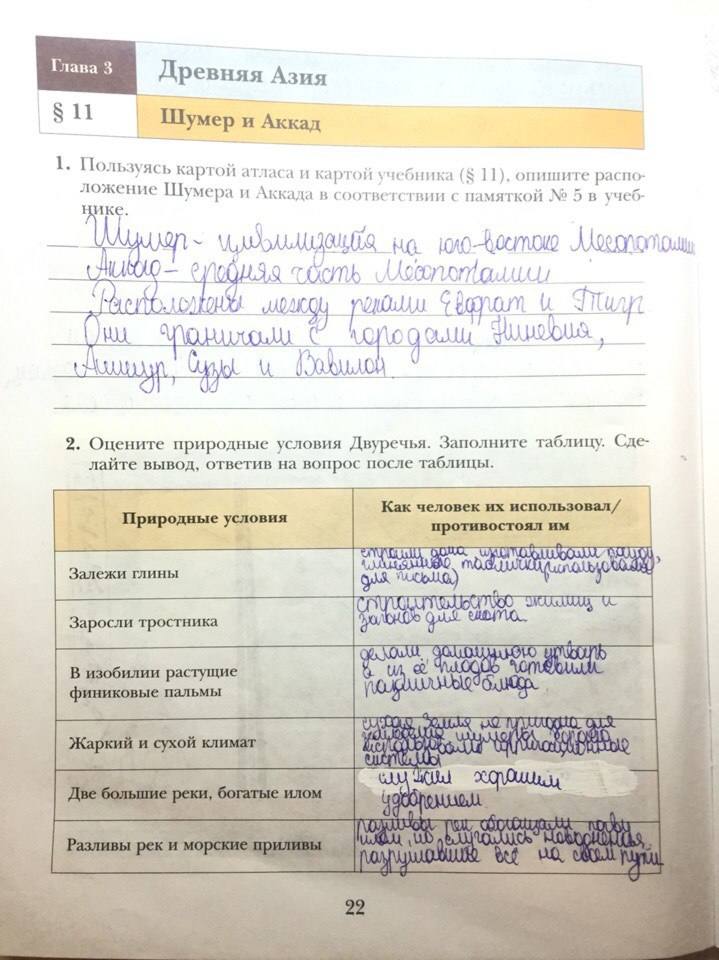 Глава 3
Древняя Азия
§ 11
Шумер и Аккад
1. Пользуясь картой атласа и картой учебника (§ 11), опишите распо-
ложение Шумера и Аккада в соответствии с памяткой № 5 в учеб-
нике.
Шумер - цивилизация на юго-востоке Месопотамии
Аккад - средняя часть Месопотамии
Расположены между реками Евфрат и Тигр
Они граничали с городами Ниневия,
Ашшур, Сузы и Вавилон.
2. Оцените природные условия Двуречья. Заполните таблицу. Сде-
лайте вывод, ответив на вопрос после таблицы.
Природные условия
Как человек их использовал/
противостоял им
Залежи глины
строили дома изготавливали посуду,
глиняные таблички (использовали
для письма)
Заросли тростника
строительство жилищ и
загонов для скота
В изобилии растущие
финиковые пальмы
делали домашнюю утварь
а из её плодов готовили
различные блюда
Жаркий и сухой климат
сухая земля не пригодна для
шумеры
использовали ирригационные
системы
Две большие реки, богатые илом
служил хорошим
удобрением.
Разливы рек и морские приливы
разливы рек обогащали почву
илом, но случались наводнения
разрушавшие всё на своем пути
22